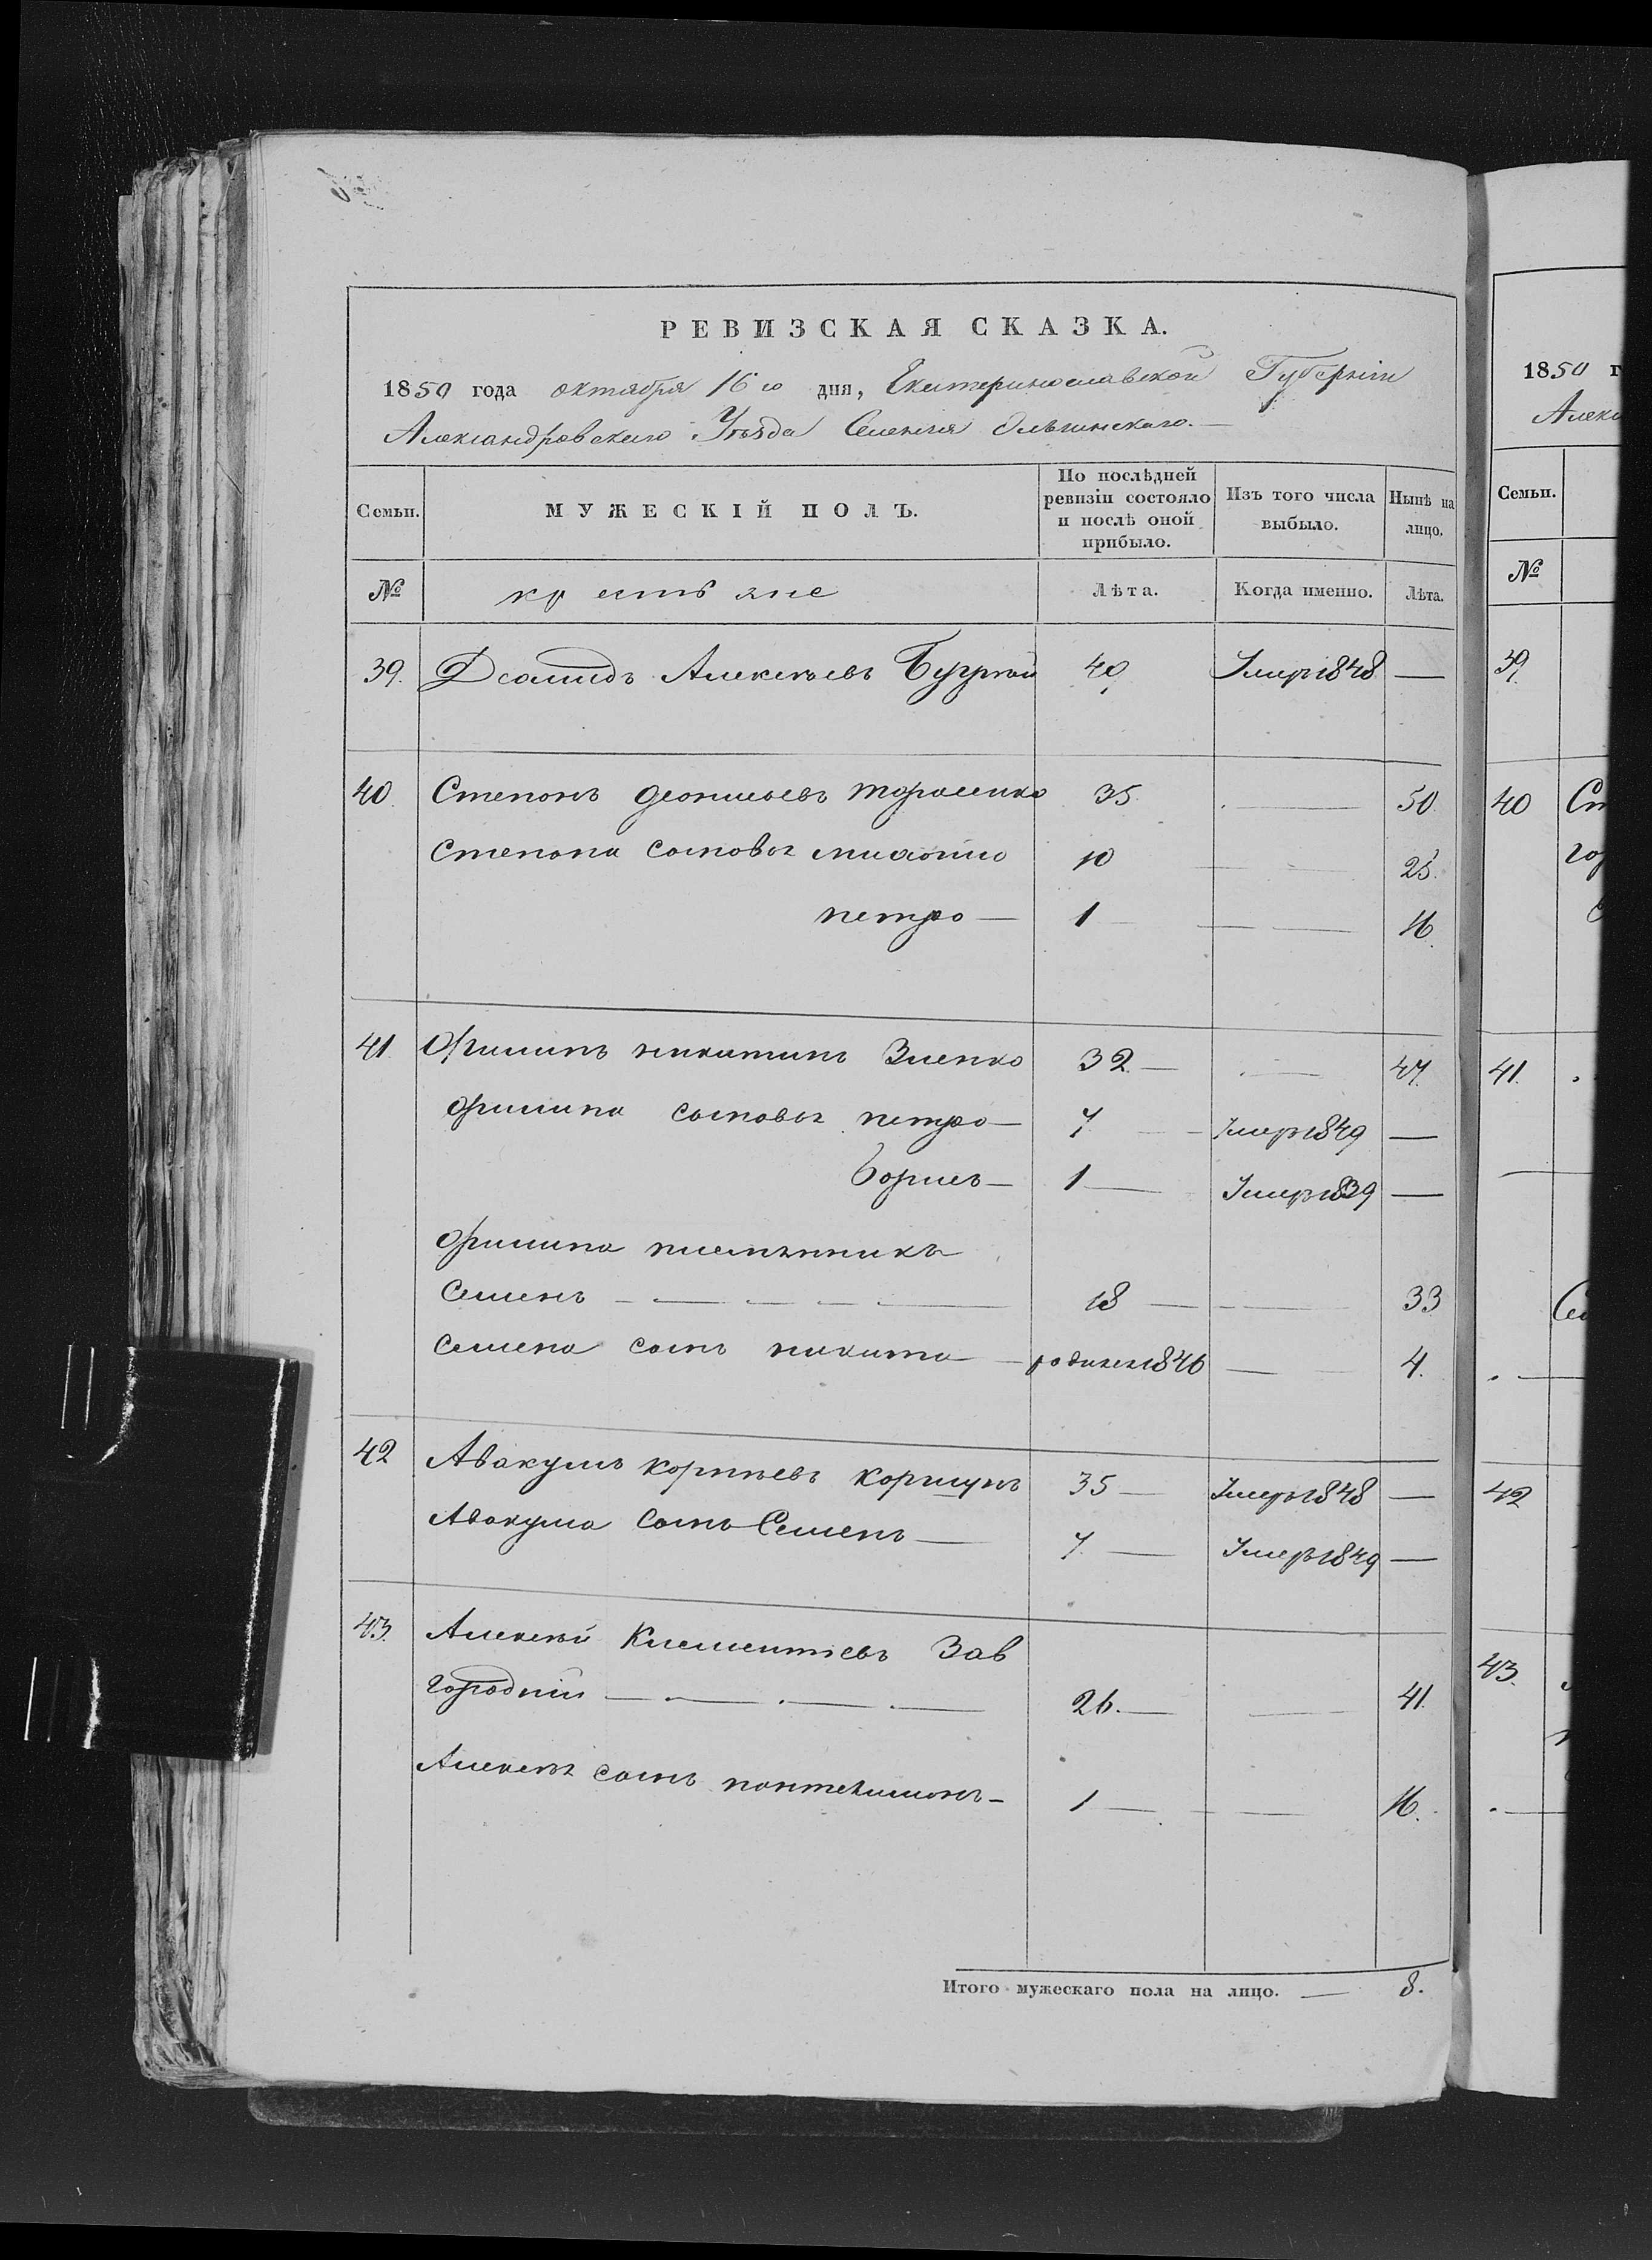 РЕВИЗСКАЯ СКАЗКА.
1850 года октября 16го дня, Екатеринославской Губерніи
Александровскаго Уѣзда Селенія Ольгинскаго.
Семьи. МУЖЕСКІЙ ПОЛЪ. По послѣдней ревизіи состояло и послѣ оной прибыло. Изъ того числа выбыло. Нынѣ на лицо.
№ крестьяне Лѣта. Когда именно. Лѣта.
39. Алексѣевъ 40 Умеръ 1848 —
40. Степанъ Тарасенко 35 — 50.
Степана сыновья 10 — 25.
петро — 1 — 16.
41. Филипъ никитинъ Зленко 32 — 47.
Филипа сыновья петро — 7 — Умеръ 1849 —
борисъ — 1 — Умеръ 1839 —
Филипа племянникъ
Семенъ — 18 — 33
Семена сынъ никита — родился 1846 — 4.
42 Авакумъ корнѣевъ коршунъ 35 — Умеръ 1848 —
Авакума сынъ Семенъ — 7. — Умеръ 1849 —
43. Алексѣй Клементіевъ Зав
городній — 26. — 41.
Алексѣя сынъ пантелимонъ — 1 — 16.
Итого мужескаго пола на лицо. — 8.
1850 г
Алекс
Семьи.
№
39.
40 Ст
41.
42
43.